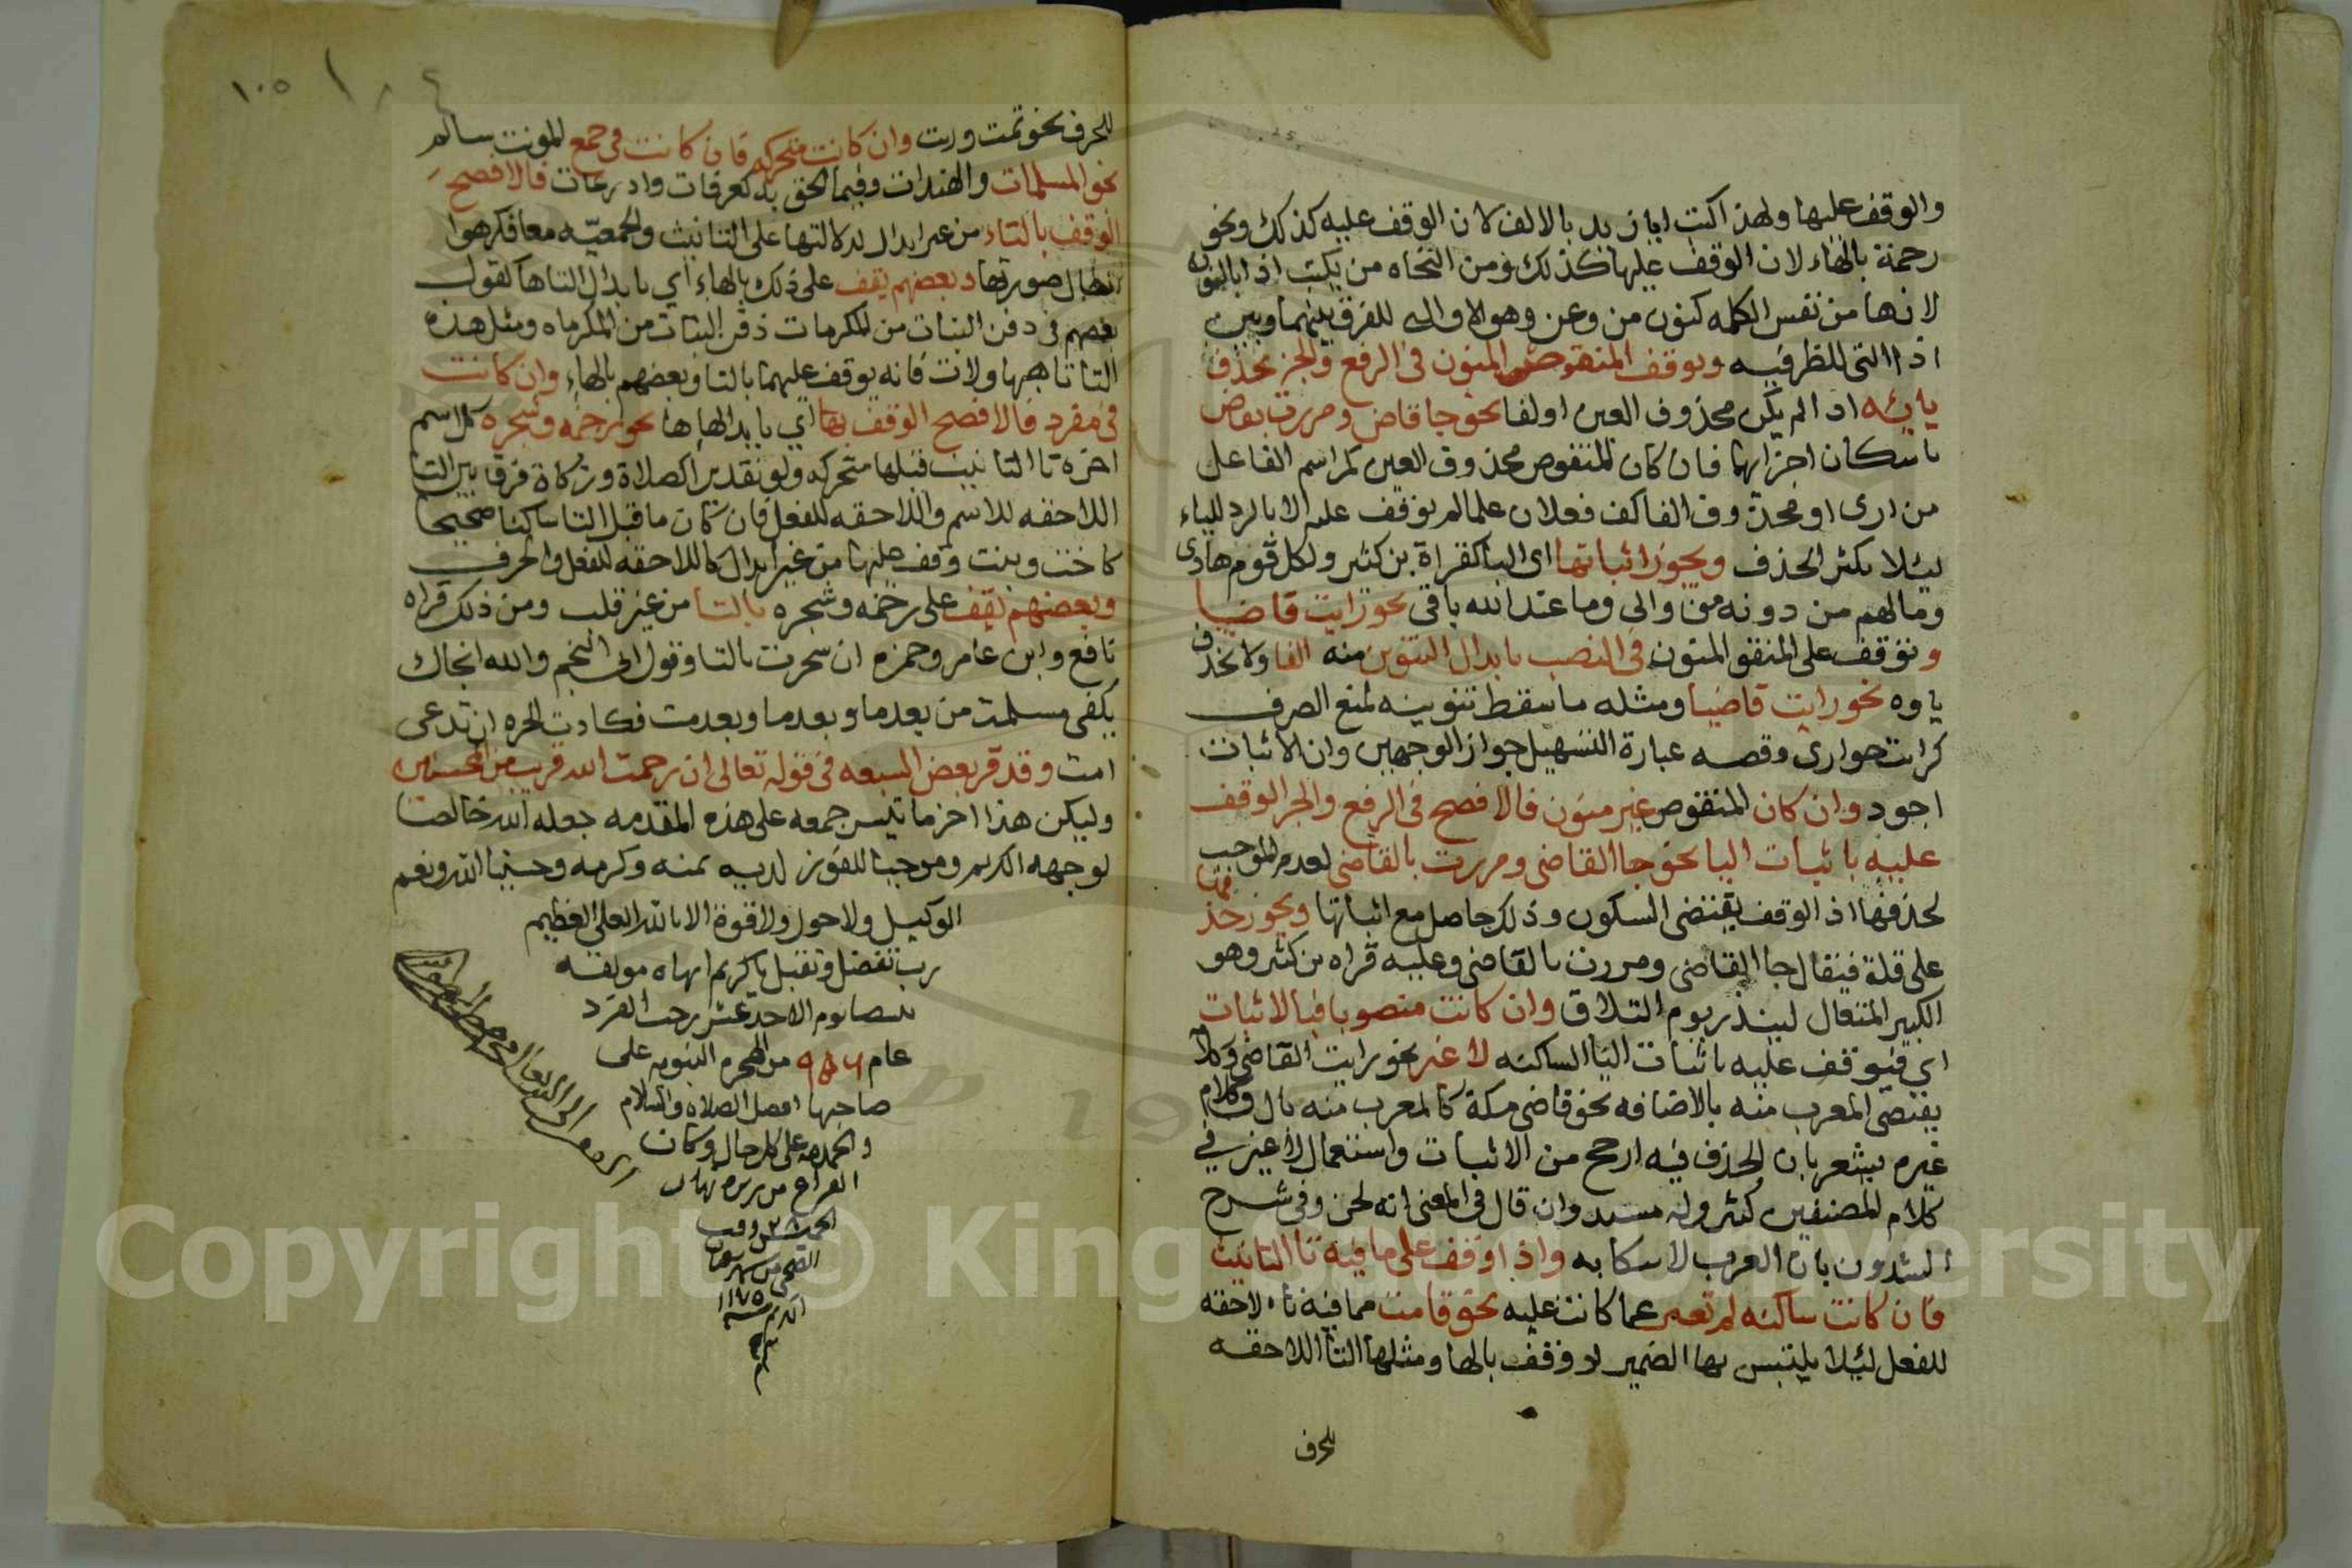 والوقف عليها ولهذا كتب ايان يد بالالف لان الوقف عليه كذلك ونحو
رحمة بالهاء لان الوقف عليها كذلك ومن النحاه من يكتب اذا بالنون
لانها من نفس الكلمه كنون من وعن وهو الاولى للفرق بينهما وبين
اذا التى للظرفيه ويوقف المنقوص المنون فى الرفع والجر بحذف
يائه اذا لم يكن محذوف العين او لفا نحو جا قاض ومررت بقاض
باسكان اخرهما فان كان المنقوص محذوف العين كمر اسم الفاعل
من ارى او محذوف الفا كف فعلان علما لم يوقف عليه الا بالرد للياء
ليلا يكثر الحذف ويجوز اثباتها اى اليا كقراة بن كثير ولكل قوم هادى
ومالهم من دونه من والى وما عند الله باقى نحو رايت قاضيا
ونوقف على المنقو المنون فى النصب بابدال التنوين منه الفا ولا تحذف
ياوه نحو رايت قاضيا ومثله ما سقط تنوينه لمنع الصرف
كرايت جوارى وقصه عبارة التسهيل جواز الوجهين وان الاثبات
اجود وان كان المنقوص غير منون فالافصح فى الرفع والجر الوقف
عليه باثبات اليا نحو جا القاضى ومررت بالقاضى لعدم الموجب
لحذفها اذ الوقف يقتضى السكون وذلك حاصل مع اثباتها ويجوز حذفها
على قلة فيقال جا القاضى ومررت بالقاضى وعليه قراه بن كثير وهو
الكبير المتعال لينذر يوم التلاق وان كانت منصوبا فبالاثبات
اي فيوقف عليه باثبات اليا الساكنه لا غير نحو رايت القاضى وكلا
يقتضى المعرب منه بالاضافه نحو قاضى مكة كالمعرب منه بال وكلام
غيره يشعر بان الحذف فيه ارجح من الاثبات واستعمال لا غير في
كلام المصنفين كثير وله مسند وان قال فى المغنى انه لحن وفى شرح
الشذور بان العرب لا واذا وقف على ما فيه تا التانيث
فان كانت ساكنه لم تغير عما كانت عليه نحو قامت مما فيه تاء لاحقه
للفعل ليلا يلتبس بها الضمير لو وقف بالها ومثلها التا اللاحقه
للحرف
١٠٥
للحرف نحو ثمت وربت وان كانت متحركه فان كانت فى جمع المونث سالم
نحو المسلمات والهندات وفيما الحق به كعرفات واذرعات فالافصح
الوقف بالتاء من غير ابدال لدلالتها على التانيث والجمعيه معا فكرهوا
ابطال صورتها وبعضهم يقف على ذلك بالهاء اي بابدال التا ها كقول
بعضهم فى دفن البنات من المكرمات دفن البناه من المكرماه ومثل هذه
التا تا هيهات ولات فانه يوقف عليهما بالتا وبعضهم بالهاء وان كانت
فى مفرد فالافصح الوقف بها اي بابدالها ها نحو رحمه وشجره كل اسم
اخره تا التانيث قبلها متحرك ولو تقديرا كصلاة وزكاة فرقا بين التا
اللاحقه للاسم واللاحقه للفعل فان كان ما قبل التا ساكنا صحيحا
كاخت وبنت وقف عليها من غير ابدال كاللاحقه للفعل والحرف
وبعضهم يقف على رحمه وشجره بالتا من غير قلب ومن ذلك قراه
نافع وابن عامر وحمزه ان شجرت بالتا وقول ابى النجم والله انجاك
بكفى مسلمت من بعدما وبعدما وبعدمت فكادت الحره ان تدعى
امت وقد قر بعض السبعه فى قوله تعالى ان رحمت الله قريب من المحسنين
وليكن هذا اخر ما تيسر جمعه على هذه المقدمه جعله الله خالصا
لوجهه الكريم وموجبا للفوز لديه بمنه وكرمه وحسبنا الله ونعم
الوكيل ولا حول ولا قوة الا بالله العلى العظيم
رب تفضل وتقبل يا كريم انهاه مولفه
يوم الاحد عشر رجب الفرد
عام من الهجره النبويه على
صاحبها افضل الصلاه والسلام
والحمد لله على كل حال وكان
الفراغ من نهار
١١٧٥